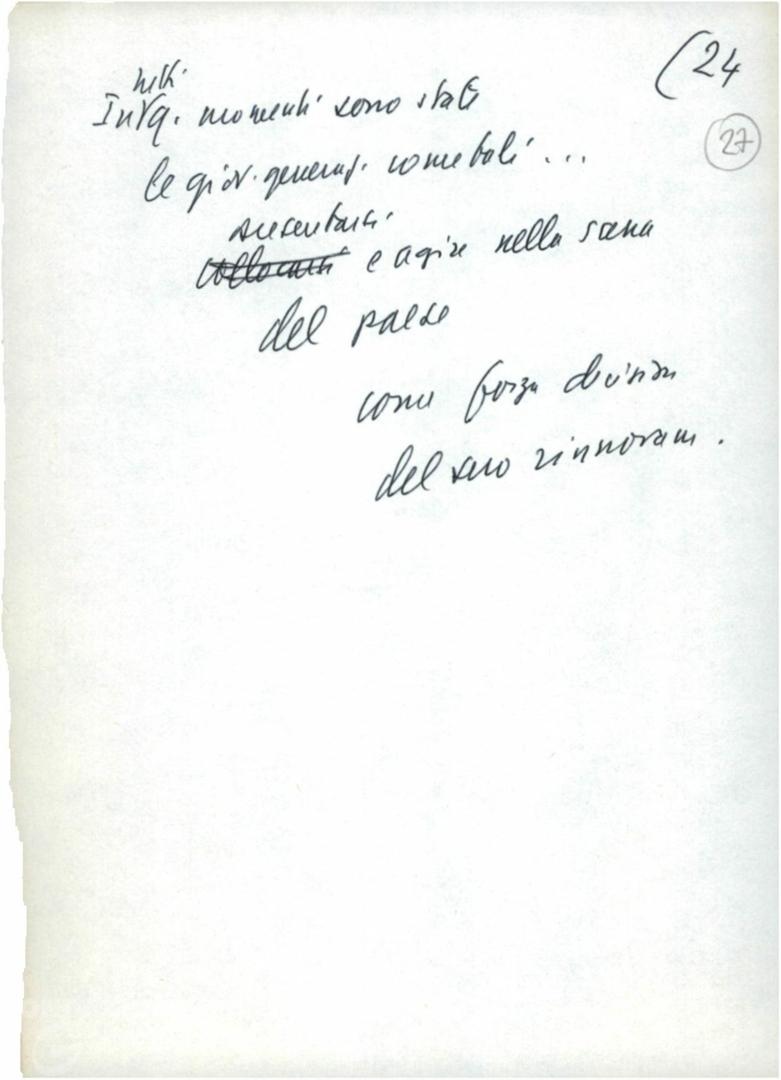 (24
27
tutti
In q. momenti sono state
le giov. generaz. come tali ...
presentarsi
collocarsi e agire nella scena
del paese
come forza decisiva
del suo rinnovam.